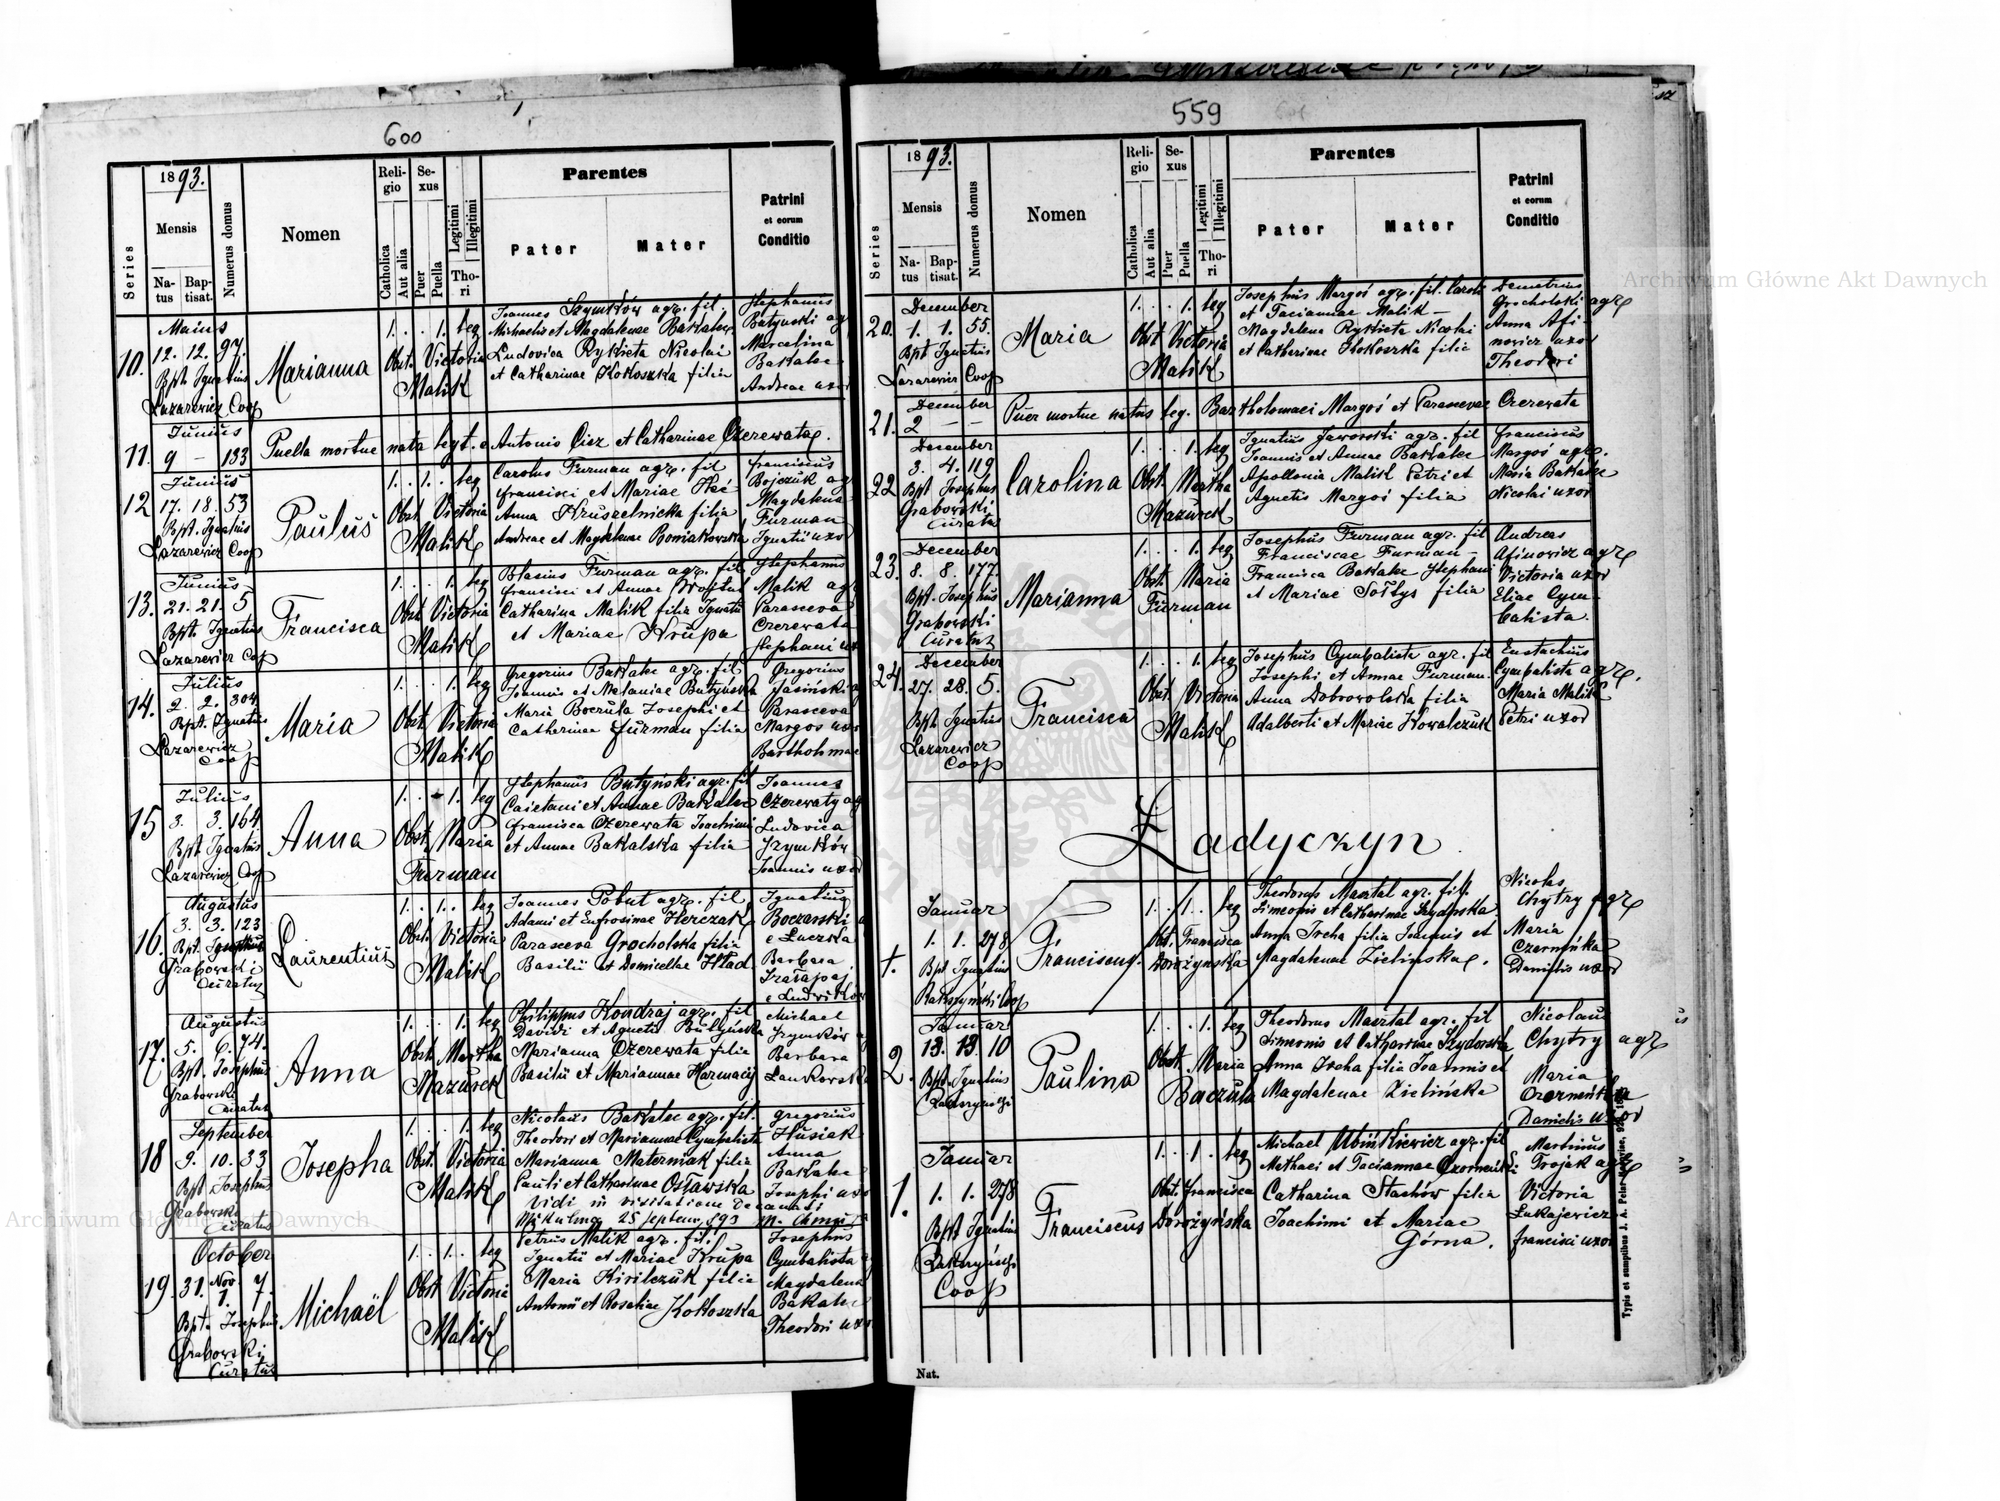 600
1893.
Series
Mensis
Natus
Baptisat.
Numerus domus
Nomen
Religio
Catholica
Aut alia
Sexus
Puer
Puella
Legitimi
Illegitimi
Thori
Parentes
Pater
Mater
Patrini
et eorum
Conditio
10.
Maius
12. 12. 97.
Bpt. Ignatius
Lazarewicz Coop
Marianna
1. . . 1. leg
Obst. Victoria
Malik
Joannes Szymków agr. fil
Michaelis et Magdalenae Bakalec
Ludovica Rykieta Nicolai
et Catharinae Kokoszka filia
Stephanus
Butynski agr
Marcelina
Bakalec
Andreae uxor
11.
Junius
9 — 133
Puella mortue nata legt. e Antonio Cisz et Catharinae Czerewata.
12
Junius
17. 18. 53
Bpt. Ignatius
Lazarewicz Coop
Paulus
1. . 1. . leg
Obst Victoria
Malik
Carolus Furman agr. fil
Francisci et Mariae
Anna Kruszelnicka filia
Andreae et Magdalenae Poniatowska
Franciscus
Bojczuk ag
Magdalena
Furman
Ignatii uxor
13.
Junius
21. 21. 5
Bpt. Ignatius
Lazarewicz Coop
Francisca
1. . . 1. leg
Obst Victoria
Malik
Blasius Furman agr. fil
Francisci et Annae
Catharina Malik filia Ignatii
et Mariae Krupa
Stephanus
Malik agr
Parasceva
Czerewata
Stephani ux
14.
Julius
2. 2. 304
Bpt. Ignatius
Lazarewicz
Coop
Maria
1. . . 1. leg
Obst. Victoria
Malik
Gregorius Bakalec agr. fil
Joannis et Melaniae Butyńska
Maria Boczula Josephi et
Catherinae Furman filia
Gregorius
Jasiński a
Parasceva
Margos uxor
Bartholomaei
15
Julius
3. 3. 164
Bpt Ignatius
Lazarewicz Coop
Anna
1. . . 1. leg
Obst. Maria
Furman
Stephanus Butyński agr. fil
Caietani et Annae Bakalec
Francisca Czerewata Joachimi
et Annae Bakalska filia
Joannes
Czerewaty ag
Ludovica
Szymków
Joannis uxor
16.
Augustus
3. 3. 123
Bpt. Josephus
Grabowski
Curatus
Laurentius
1. . 1. . leg
Obst. Victoria
Malik
Joannes Pobut agr. fil
Adami et Eufrosinae Herczak
Parasceva Grocholska filia
Basilii et Domicellae Hład
Ignatius
Boczarski
e Luczka
Barbara
e Ludwików
17.
Augustus
5. 6. 74.
Bpt. Josephus
Grabowski
Curatus
Anna
1. . . 1. leg
Obst Martha
Mazurek
Philippus Kondraj agr. fil
Davidi et Agnetis Butyńska
Marianna Czerewata filia
Basilii et Mariannae Harmacij
Michael
Szymków
Barbara
Lankovska
18
September
9. 10. 33
Bpt. Josephus
Grabowski
Curatus
Josepha
1. . . 1. leg
Obst. Victoria
Malik
Nicolaus Bakalec agr. fil.
Theodori et Mariannae Cymbalista
Marianna Materniak filia
Pauli et Catharinae Ostawska
Vidi in visitatione Decanali
Mikulińce 25 Septem. 893
Gregorius
Husiak
Anna
Bakalec
Josephi uxor
19.
October
31. Nov. 1. 7.
Bpt. Josephus
Grabowski
Curatus
Michaël
1. . 1. . leg
Obst Victoria
Malik
Petrus Malik agr. fil.
Ignatii et Mariae Krupa
Maria Kirilczuk filia
Antonii et Rosaliae Kokoszka
Josephus
Cymbalista
Magdalena
Bakalec
Theodori uxor
559
1893.
Series
Mensis
Natus
Baptisat.
Numerus domus
Nomen
Religio
Catholica
Aut alia
Sexus
Puer
Puella
Legitimi
Illegitimi
Thori
Parentes
Pater
Mater
Patrini
et eorum
Conditio
20.
December
1. 1. 55.
Bpt Ignatius
Lazarewicz Coop
Maria
1. . . 1. leg
Obst Victoria
Malik
Josephus Margoś agr. fil. Caroli
et Taciannae Malik —
Magdalena Rykieta Nicolai
et Catherinae Kokoszka filia
Demetrius
Grocholski agr
Anna Afi-
nowicz uxor
Theodori
21.
December
2 — —
Puer mortue natus leg. Bartholomaei Margoś et Parascevae Czerewata
22
December
3. 4. 119
Bpt Josephus
Grabowski
Curatus
Carolina
1. . . 1. leg
Obst Martha
Mazurek
Ignatius Jaworski agr. fil
Joannis et Annae Bakalec
Apollonia Malik Petri et
Agnetis Margoś filia
Franciscus
Margoś agr.
Maria Bakalec
Nicolai uxor
23.
December
8. 8. 177.
Bpt. Josephus
Grabowski
Curatus
Marianna
1. . . 1. leg
Obst. Maria
Furman
Josephus Furman agr. fil
Franciscae Furman —
Francisca Bakalec Stephani
et Mariae Sołtys filia
Andreas
Afinowicz agr
Victoria uxor
Eliae Cym-
balista.
24.
December
27. 28. 5.
Bpt Ignatius
Lazarewicz
Coop
Francisca
1. . . 1. leg
Obst. Victoria
Malik
Josephus Cymbalista agr. fil
Josephi et Annae Furman
Anna Dobrowolska filia
Adalberti et Mariae Kowalczuk
Eustachius
Cymbalista agr.
Maria Malik
Petri uxor
Ładyczyn
Januar
1. 1. 278
Bpt Ignatius
Rakszyński Coop
Franciscus.
1. . 1. . leg
Obst. Francisca
Dorożyńska
Theodorus Masztal agr. fil.
Simeonis et Catharinae Szydorska
Anna Ircha filia Joannis et
Magdalenae Zielinska.
Nicolas
Chytry agr
Maria
Czarnińka
Danielis uxor
2.
Januar
13. 13. 10
Bpt. Ignatius
Rakszyński
Paulina
1. . . 1. leg
Obst. Maria
Boczula
Theodorus Masztal agr. fil
Simeonis et Catharinae Szydorska
Anna Ircha filia Joannis et
Magdalenae Zielińska
Nicolaus
Chytry agr
Maria
Danielis uxor
1.
Januar
1. 1. 278
Bpt Ignatius
Rakszyński
Coop
Franciscus
1. . 1. . leg
Obst. Francisca
Dorożyńska
Michael Ubińkiewicz agr. fil
Mathaei et Taciannae
Catharina Stachów filia
Joachimi et Mariae
Górna.
Martinus
Trojak agr
Victoria
Lukajewicz
Francisci uxor
Nat.
Archiwum Główne Akt Dawnych
Archiwum Główne Akt Dawnych